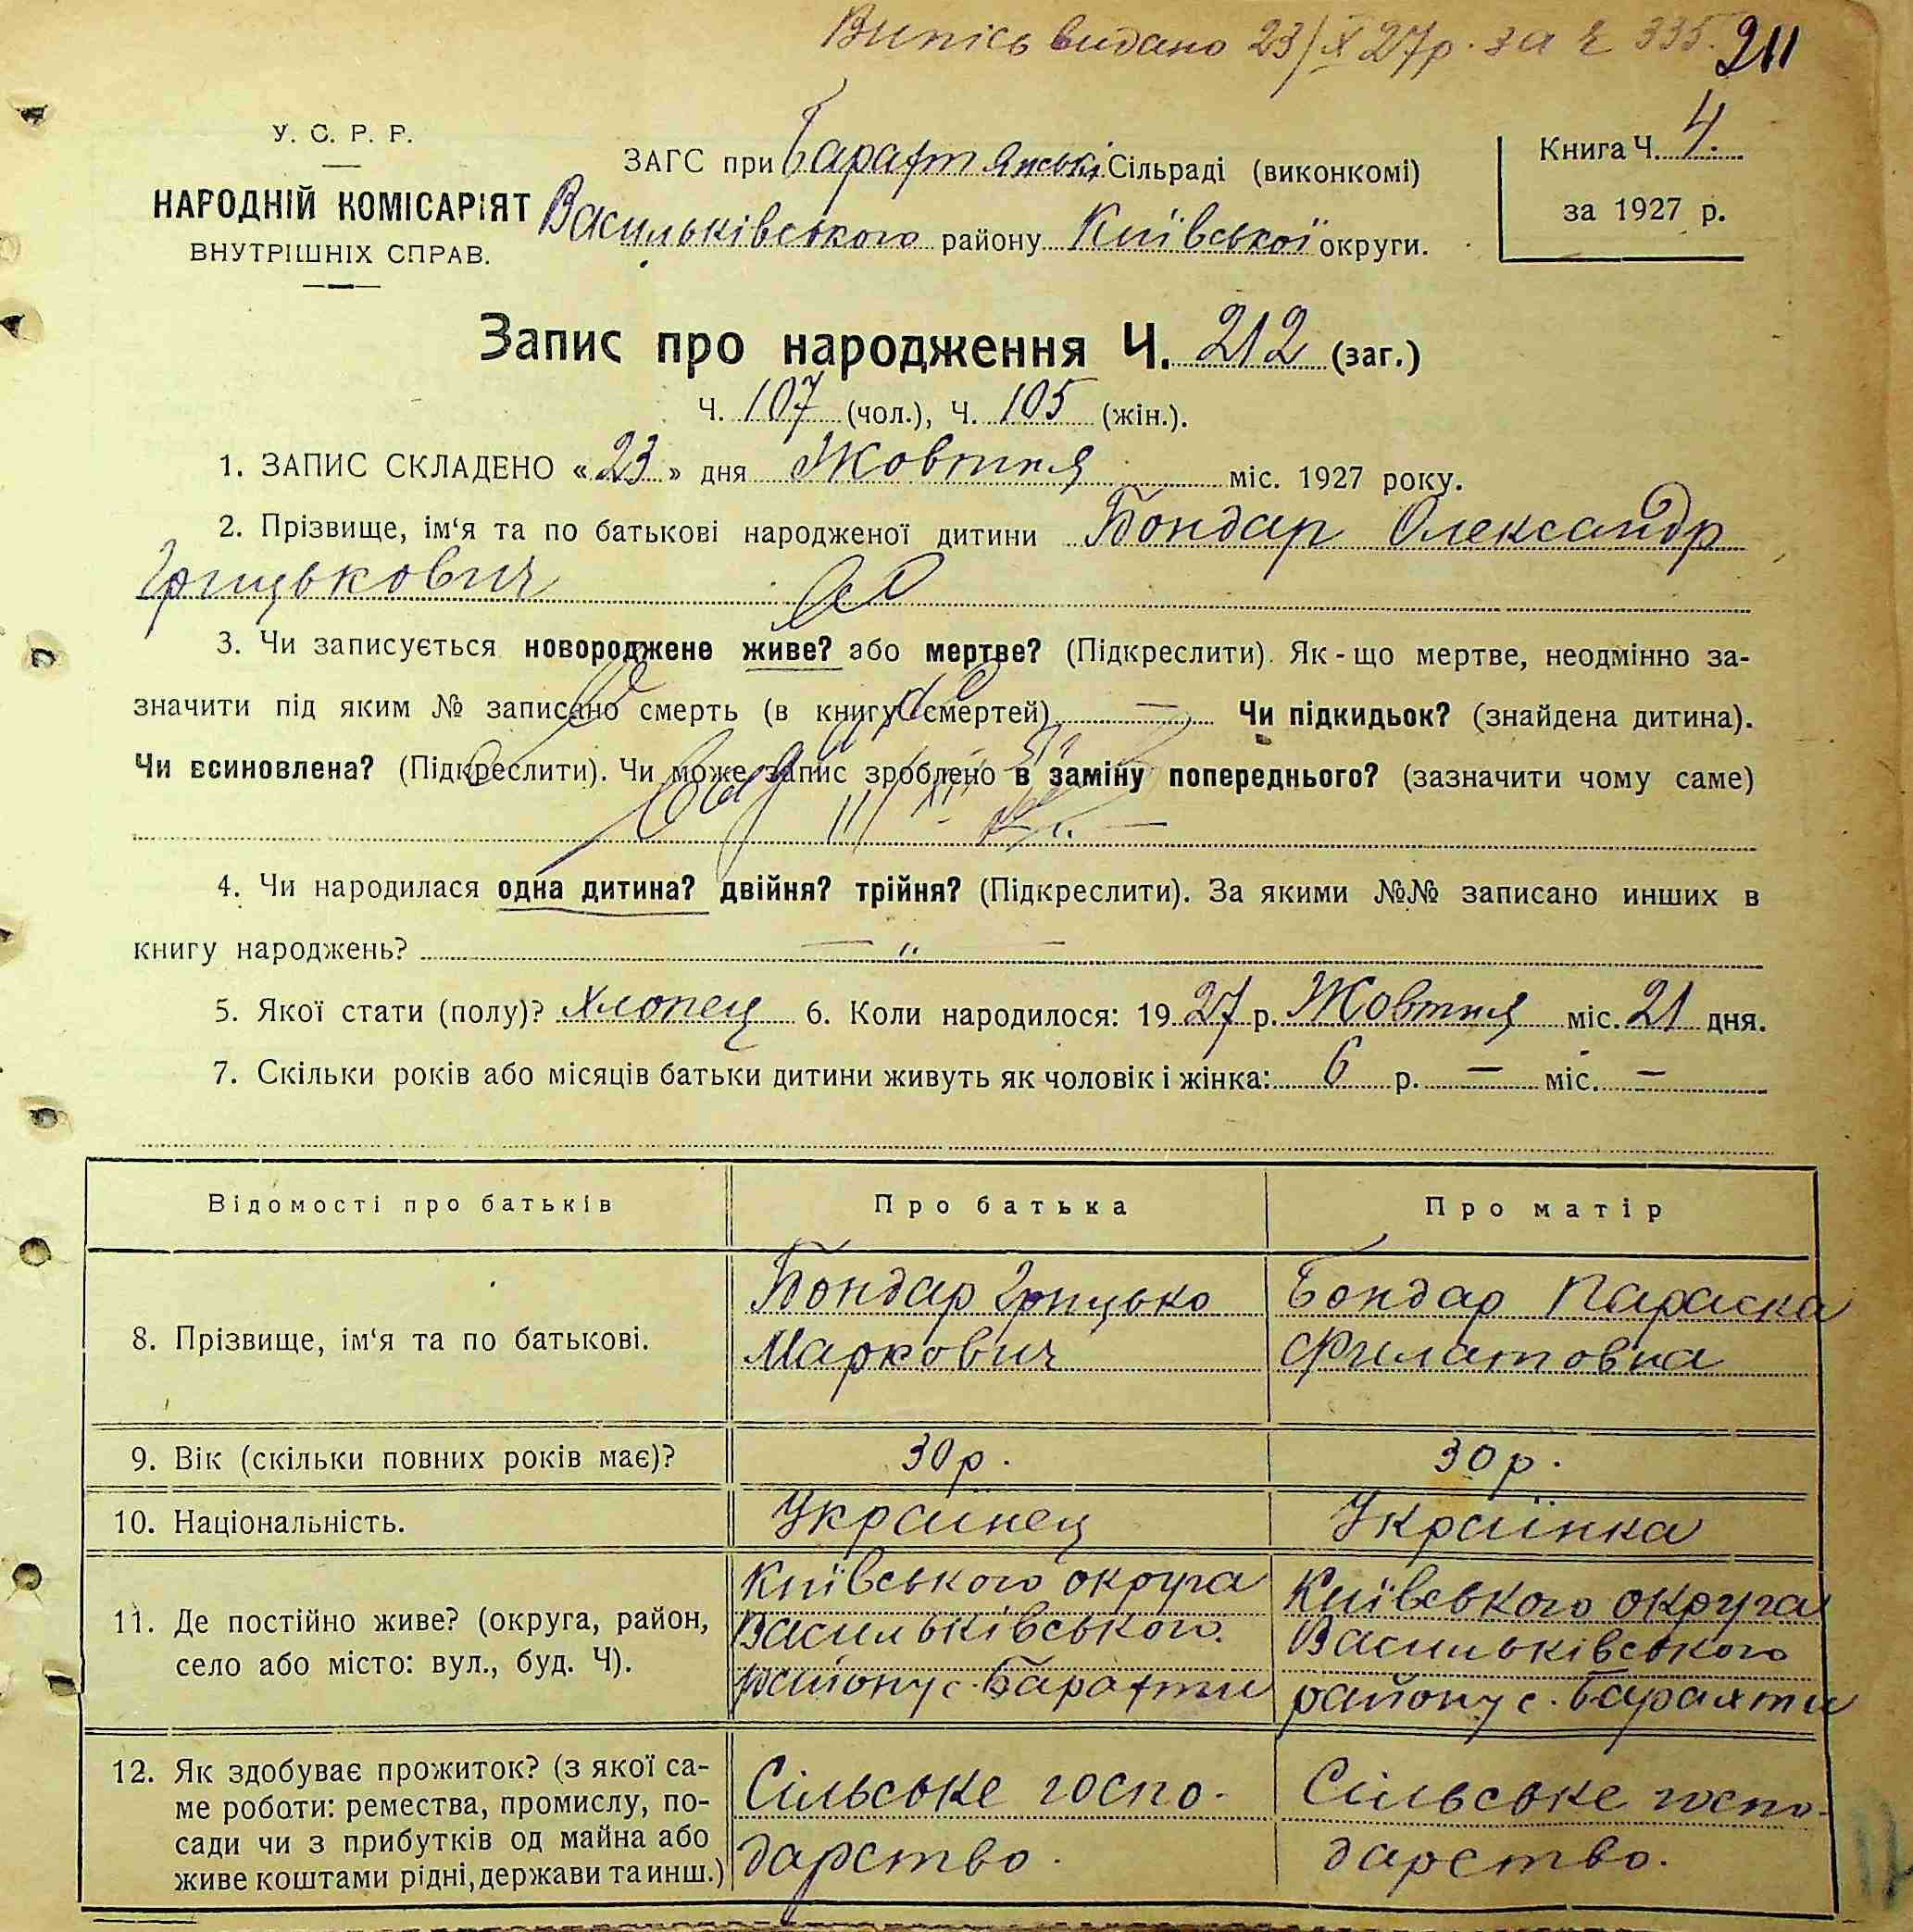 Випісь видано 23/X 27р. за № 335.
211
У. С. Р. Р.
НАРОДНІЙ КОМІСАРІЯТ
ВНУТРІШНІХ СПРАВ.
ЗАГС при Барахтянські Сільраді (виконкомі)
Васильківського району Київської округи.
Книга Ч. 4.
за 1927 р.
Запис про народження Ч. 212 (заг.)
Ч. 107 (чол.), Ч. 105 (жін.).
1. ЗАПИС СКЛАДЕНО «23» дня Жовтня міс. 1927 року.
2. Прізвище, ім‘я та по батькові народженої дитини Бондар Олександр
Грицькович
3. Чи записується новороджене живе? або мертве? (Підкреслити). Як-що мертве, неодмінно за-
значити під яким № записано смерть (в книгу смертей) — Чи підкидьок? (знайдена дитина).
Чи всиновлена? (Підкреслити). Чи може запис зроблено в заміну попереднього? (зазначити чому саме)
4. Чи народилася одна дитина? двійня? трійня? (Підкреслити). За якими №№ записано инших в
книгу народжень? — „ —
5. Якої стати (полу)? Хлопец 6. Коли народилося: 1927 р. Жовтня міс. 21 дня.
7. Скільки років або місяців батьки дитини живуть як чоловік і жінка: 6 р. — міс. —
Відомості про батьків Про батька Про матір
8. Прізвище, ім‘я та по батькові.
Бондар Грицько
Маркович
Бондар Параска
Филатовна
9. Вік (скільки повних років має)? 30 р. 30 р.
10. Національність. Украінец Украінка
11. Де постійно живе? (округа, район,
село або місто: вул., буд. Ч).
Київського округа
Васильківського
району с. Барахти
Київського округа
Васильківського
району с. Барахти
12. Як здобуває прожиток? (з якої са-
ме роботи: ремества, промислу, по-
сади чи з прибутків од майна або
живе коштами рідні, держави та инш.)
Сільське госпо-
дарство.
Сільське госпо-
дарство.